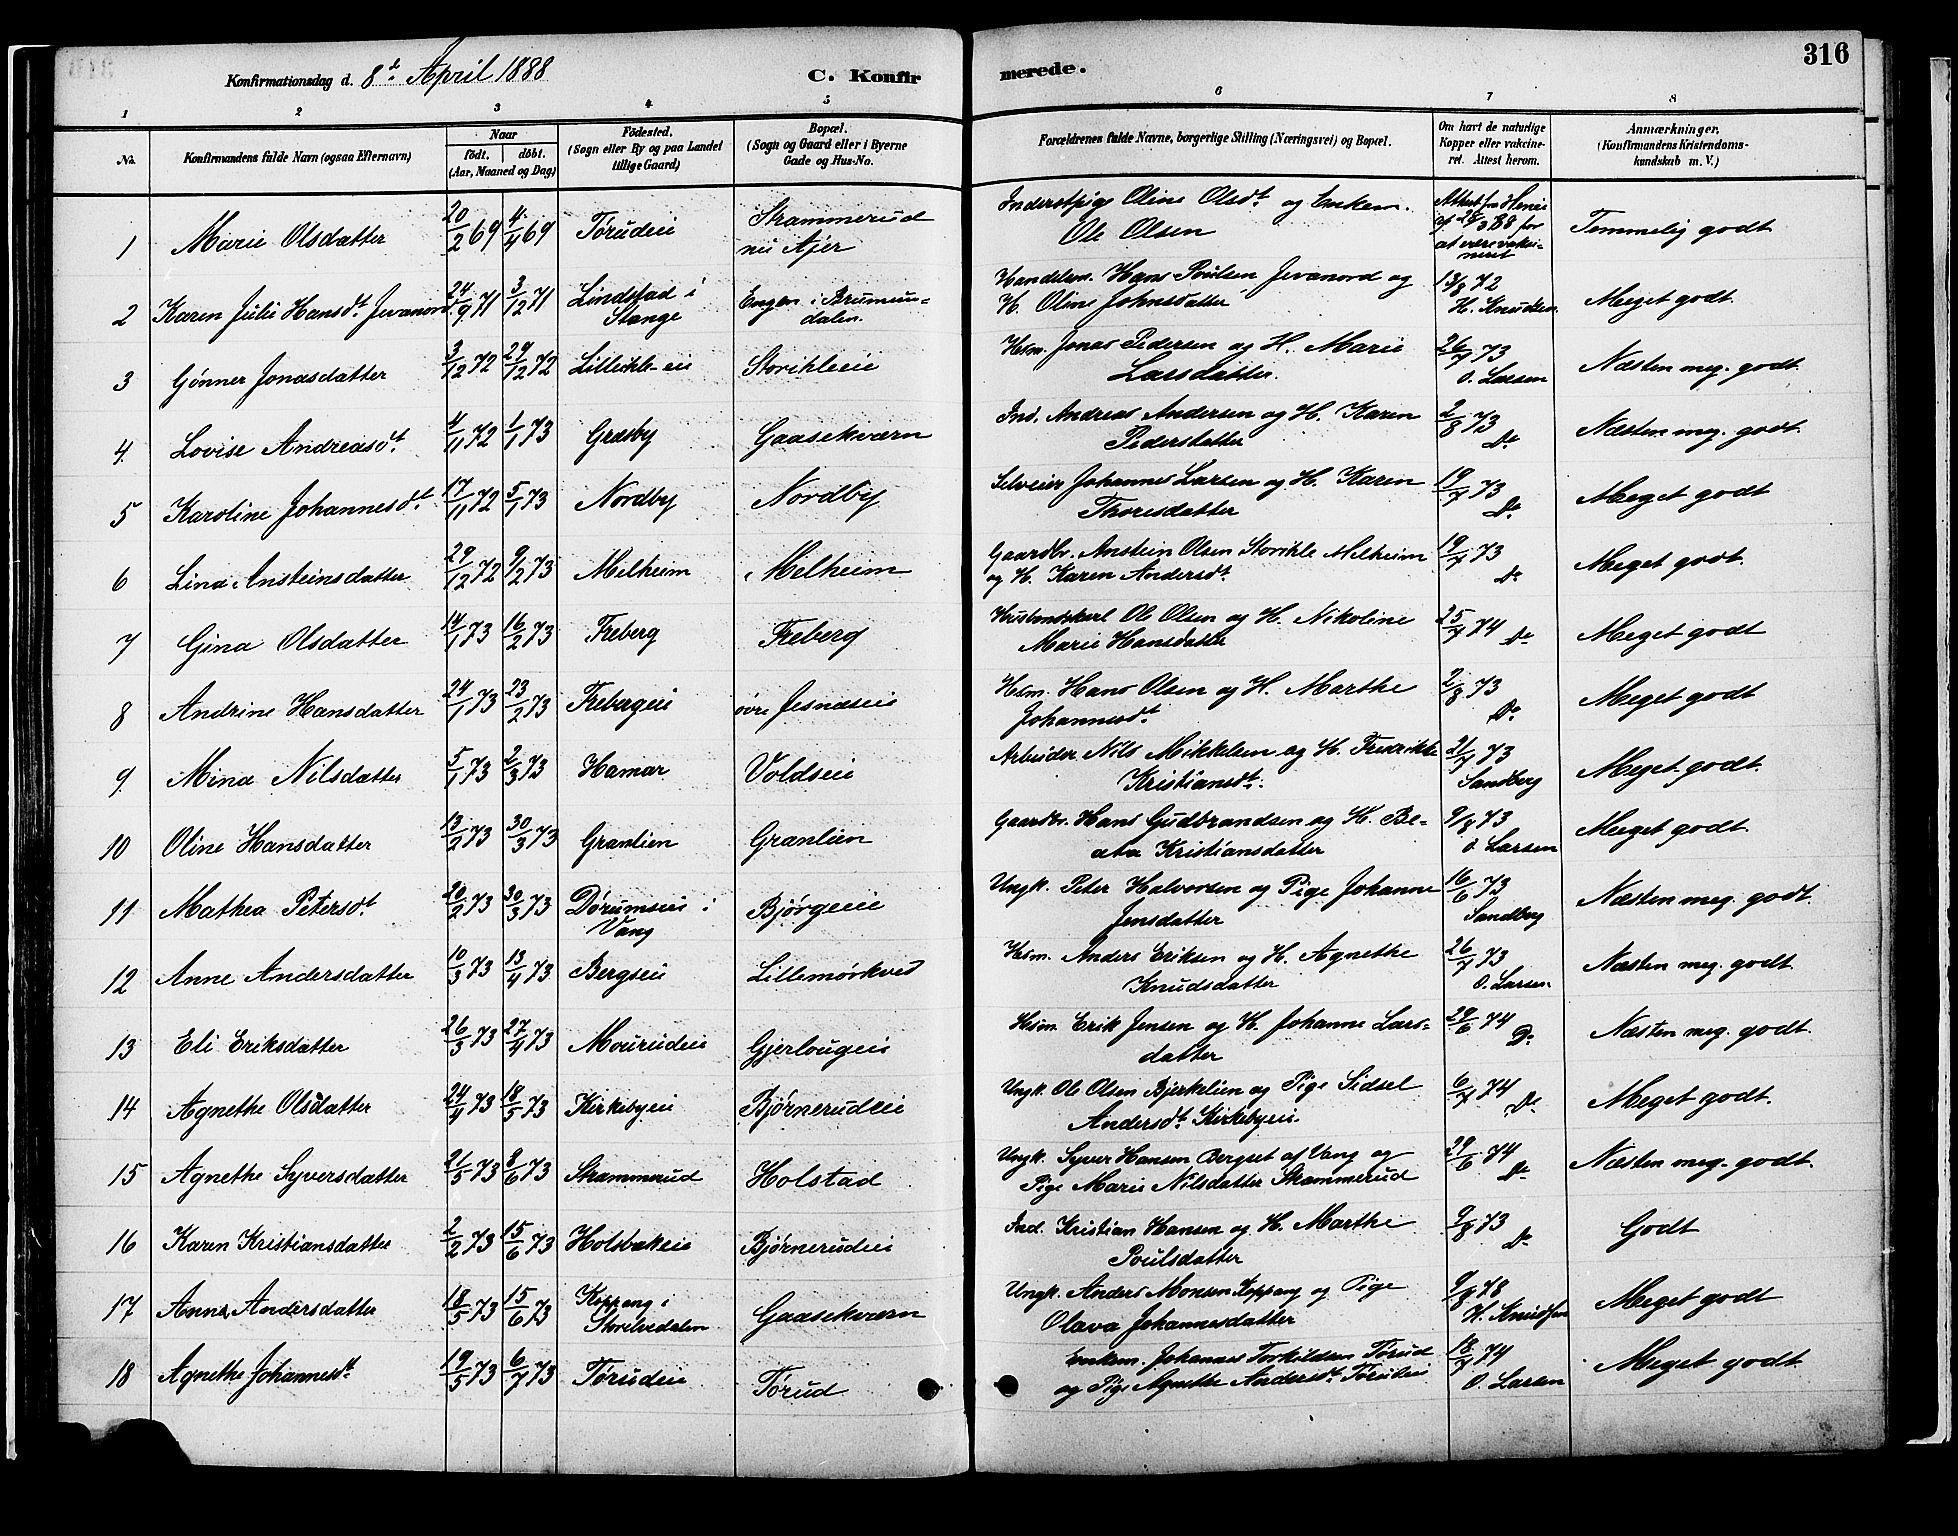 316
Konfirmationsdag d. 8de April 1888
C. Konfirmerede.
1 2 3 4 5 6 7 8
No. Konfirmandens fulde Navn (ogsaa Efternavn) Naar födt, döbt. (Aar, Maaned og Dag) Födested. (Sogn eller By og paa Landet tillige Gaard) Bopæl. (Sogn og Gaard eller i Byerne Gade og Hus-No. Forældrenes fulde Navne, borgerlige Stilling (Næringsvei) og Bopæl. Om havt de naturlige Kopper eller vakcineret. Attest herom. Anmærkninger. (Konfirmandens Kristendomskundskab m. V.)
1 Marie Olsdatter 20/2 69 4/4 69 Tørudeie Strammerud nu Ajer Inderstpige Oline Olsdt og Enkem. Ole Olsen Attest fra af 28/3 88 for at være vaksineret Temmelig godt
2 Karen Julie Hansdt Jevanord 24/9 71 3/12 71 Lindstad i Stange Engen i Brumundalen Handelsm. Hans Poulsen Jevanord og H. Oline Johnsdatter 13/8 72 H. Knudsen Meget godt
3 Gønner Jonasdatter 3/12 72 29/12 72 Lilleihle-eie Storihleeie Hsm. Jonas Pedersen og H. Marie Larsdatter. 26/7 73 O. Larsen Næsten meg. godt
4 Lovise Andreasdt 4/11 72 1/1 73 Græsby Gaasekværn Ind. Andreas Andersen og H. Karen Pedersdatter 2/8 73 Do Næsten meg. godt
5 Karoline Johannesdt 17/11 72 5/1 73 Nordby Nordby Selveier Johannes Larsen og H. Karen Thoresdatter 19/7 73 Do Meget godt
6 Lina Ansteinsdatter 29/12 72 9/2 73 Melheim Melheim Gaardbr. Anstein Olsen Storihle Melheim og H. Karen Andersdt 19/7 73 Do Meget godt.
7 Gina Olsdatter 14/1 73 16/2 73 Freberg Freberg Husmandskarl Ole Olsen og H. Nikoline Marie Hansdatter 25/7 74 Do Meget godt
8 Andrine Hansdatter 24/1 73 23/2 73 Frebergeie øvre Jesnæseie Hsm. Hans Olsen og H. Marthe Johannesdt 2/8 73 Do Meget godt
9 Mina Nilsdatter 5/1 73 2/3 73 Hamar Voldseie Arbeider Nils Mikkelsen og H. Fredrikke Kristiansdt. 21/7 73 Sandberg Meget godt.
10 Oline Hansdatter 13/2 73 30/3 73 Granlien Granlien Gaardbr. Hans Gudbrandsen og H. Beata Kristiansdatter 9/8 73 O. Larsen Meget godt
11 Mathea Petersdt 20/2 73 30/3 73 Dørumseie i Vang Bjørgeeie Ungk. Peter Halvorsen og Pige Johanne Jensdatter 16/6 73 Sandberg Næsten meg. godt
12 Anne Andersdatter 10/3 73 13/4 73 Bergseie Lillemørkved Hsm. Anders Eriksen og H. Agnethe Knudsdatter 26/7 73 O. Larsen Næsten meg. godt
13 Eli Eriksdatter 26/3 73 27/4 73 Mourudeie Gjerlougeie Hsm. Erik Jensen og H. Johanne Larsdatter 29/6 74 Do Næsten meg. godt.
14 Agnethe Olsdatter 24/4 73 18/5 73 Kirkebyeie Bjørnerudeie Ungk. Ole Olsen Bjerkelien og Pige Sidsel Andersdt Kirkebyeie. 6/7 74 Do Meget godt.
15 Agnethe Syversdatter 21/5 73 8/6 73 Strammerud Holstad Ungk. Syver Hansen Bergset af Vang og Pige Marie Nilsdatter Strammerud 29/6 74 Do Næsten meg. godt.
16 Karen Kristiansdatter 2/2 73 15/6 73 Holsbakeie Bjørnerudeie Ind. Kristian Hansen og H. Marthe Poulsdatter 9/8 73 Do Godt
17 Anne Andersdatter 18/5 73 15/6 73 Koppang i Storelvedalen Gaasekværn Ungk. Anders Monsen Koppang og Pige Olava Johannesdatter 9/8 78 H. Knudsen Meget godt
18 Agnethe Johannesdt 19/5 73 6/7 73 Tørudeie Tørud Enkem. Johannes Torkildsen Tørud og Pige Agnethe Andersdt Tørudeie 18/7 74 O. Larsen Meget godt